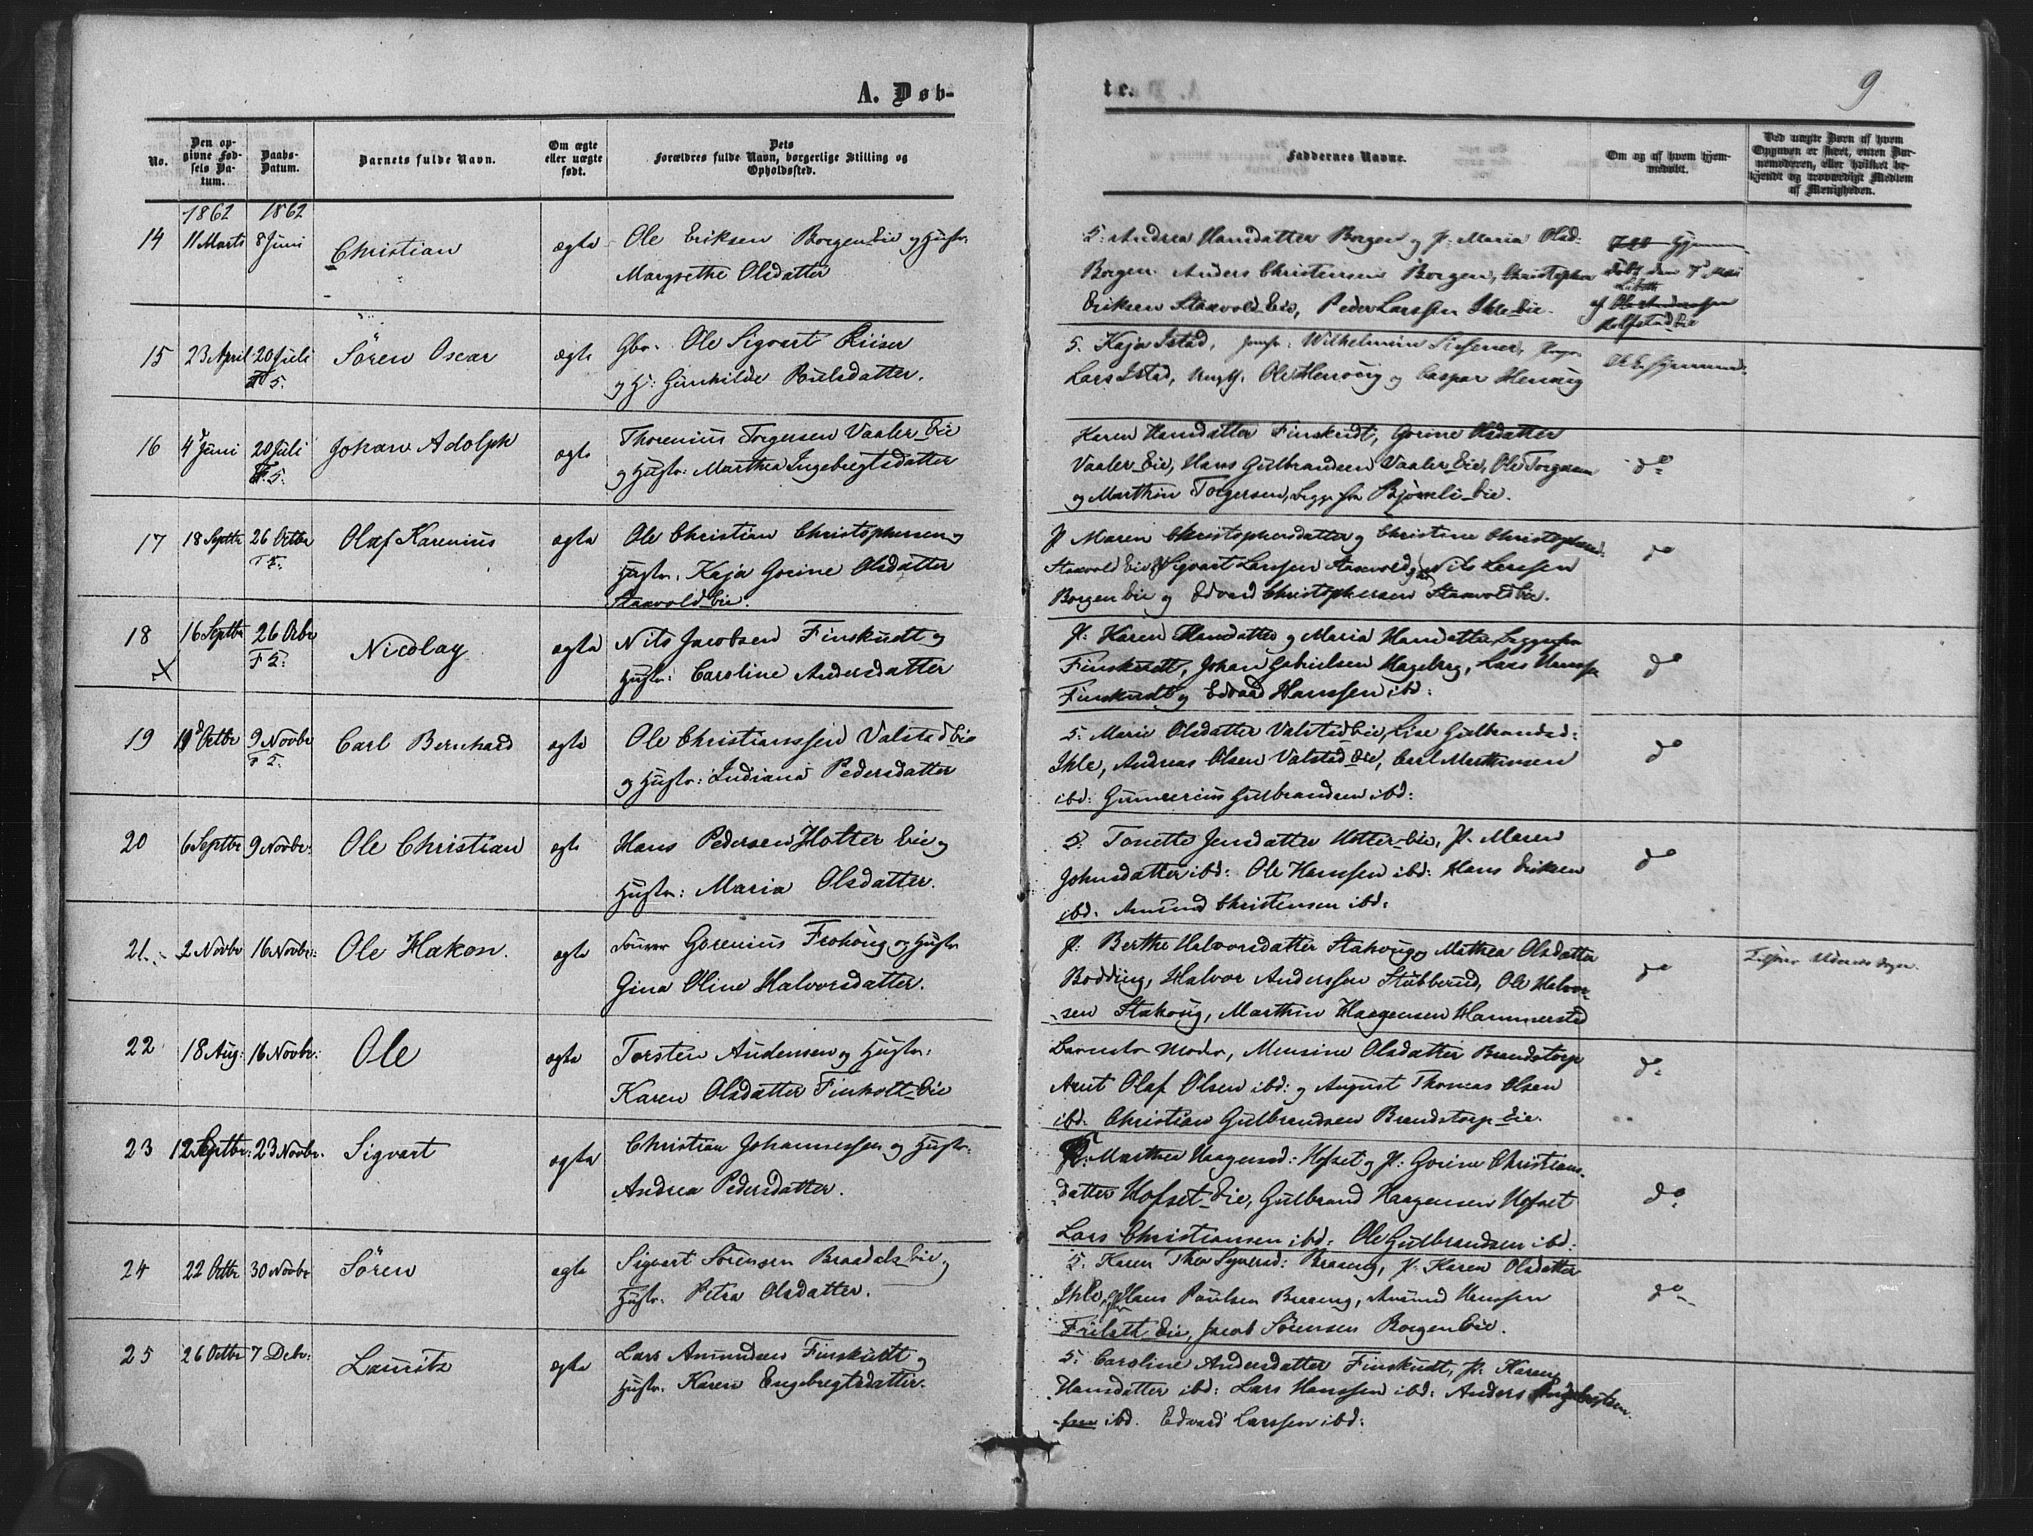 A. Døb-
te.
9
No.
Den op-
givne Fød-
sels Da-
tum.
Daabs-
Datum.
Barnets fulde Navn.
Om ægte
eller uægte
født.
Dets
Forældres fulde Navn, borgerlige Stilling og
Opholdssted.
Faddernes Navne.
Om og af hvem hjem-
medøbt.
Ved uægte Børn af hvem
Opgaven er skeet, enten Bar-
nemoderen, eller hvilket be-
kjendt og troværdigt Medlem
af Menigheden.
1862 1862
14 11 Marts 8 Juni Christian ægte Ole Eriksen Borgen Eie og Hustr:
Margrethe Olsdatter
5: Andrea Hansdatter Borgen og P: Maria Olsd:
Borgen. Anders Christensen Borgen, Christopher
Eriksen Staxvold Eie, Peder Larssen Ihle Eie.
Hjemme
døbt den 7 Mai
af
Rolfstad Eie
15 23 April 20 Juli Søren Oscar ægte Gbr. Ole Sigvart Riiser
T 5. og H: Gunhilde Pulsdatter.
5. Kaja Isted, Jomfr: Wilhelmine
Lars Isted, Ungk. Ole Henning og Caspar Henning
16 4 Juni 20 Juli Johan Adolph ægte Thorenius Torgersen Vaaler Eie
T 5. og Hustr: Marthea Ingebregtsdatter
Karen Hansdatter Finskudt, Gorine Olsdatter
Vaaler Eie, Hans Gulbrandsen Vaaler Eie, Ole Torgersen
og Marthin Torgersen, begge fra Bjørneli Eie.
do
17 18 Septbr 26 Octbr Olaf Karenius ægte Ole Christian Christophersen og
T 5. Hustr. Kaja Gorine Olsdatter
Staxvold Eie.
P Maren Christophersdatter og Christine Christophersd:
Staxvold Eie, Sigvart Larssen Staxvold og Nils Larssen
Borgen Eie og Edvard Christophersen Staxvold Eie.
do
18 16 Septbr 26 Octbr Nicolay ægte Nils Jacobsen Finskudt og
T 5. Hustr: Caroline Andersdatter
P: Karen Hansdatter og Maria Hansdatter, begge fra
Finskudt, Johan Gabrielsen Hageberg, Lars Hanssen
Finskudt og Edvard Hanssen ibd:
do
19 19 Octbr 9 Novbr Carl Bernhard ægte Ole Christianssen Valsted Eie
T 5. og Hustr: Indiana Pedersdatter
5. Marie Olsdatter Valsted Eie, Lise Gulbrandsd:
Ihle, Andreas Olsen Valsted Eie, Carl Marthinsen
ibd: Gunnerius Gulbrandsen ibd:
do
20 6 Septbr 9 Novbr: Ole Christian ægte Hans Pedersen Holter Eie og
Hustr: Maria Olsdatter.
5. Tonette Jensdatter Holter Eie, P. Maren
Johnsdatter ibd: Ole Hanssen ibd: Hans Eriksen
ibd. Amund Christensen ibd:
do
21. 2 Novbr 16 Novbr: Ole Hakon. ægte Gorenius Frohoug og Hustr
Gina Oline Halvorsdatter.
P. Berthe Halvorsdatter Stahoug og Mathea Olsdatter
Bodding, Halvor Anderssen Stubberud, Ole Halvor-
sen Stahoug, Marthin Haagensen Hammersted
do
22 18 Aug: 16 Novbr: Ole ægte Torsten Audensen og Hustr:
Karen Olsdatter Finholt Eie
Barnets Moder, Mensine Olsdatter Brandstorp
Anit Olaf Olsen ibd: og August Thomas Olsen
ibd. Christian Gulbrandsen Brandstorp Eie.
do
23 12 Septbr: 23 Novbr. Sigvart ægte Christian Johannessen og Hustr:
Andrea Pedersdatter.
Marthea Haagensd: Hofset og P: Gorine Christians-
datter Hofset Eie, Gulbrand Haagensen Hofset
Lars Christiansen ibd: Ole Gulbrandsen ibd:
do
24 22 Octbr 30 Novbr Søren ægte Sigvart Sørensen Braadals Eie og
Hustr. Petra Olsdatter.
5. Karen Thea Syversd: Braaeng, P. Karen Olsdatter
Ihle, Hans Paulsen Braaeng, Amund Hanssen
Frilseth Eie, Jacob Sørensen Borgen Eie.
do
25 26 Octbr 7 Debr: Lauritz ægte Lars Amundsen Finskudt og
Hustr. Karen Engebregtsdatter.
5. Caroline Andersdatter Finskudt, P. Karen
Hansdatter ibd: Lars Hanssen ibd: Anders
ibd. Edvard Larssen ibd: